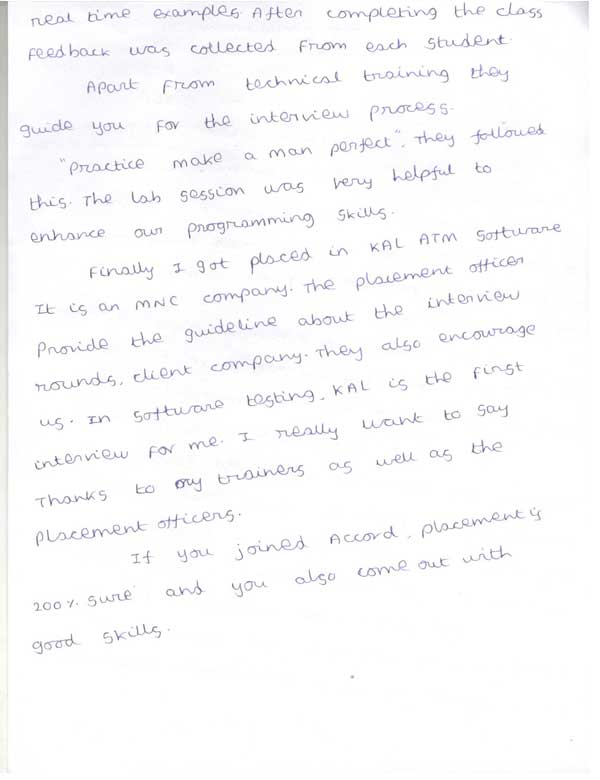 real time examples. After completing the class
feedback was collected from each student.
Apart from technical training they
guide you for the interview process.
"Practice make a man perfect". They followed
this. The lab session was very helpful to
enhance our programming skills.
Finally I got placed in KAL ATM Software
It is an MNC company. The placement officer
Provide the guideline about the interview
rounds, client company. They also encourage
us. In software testing, KAL is the first
interview for me. I really want to say
Thanks to my trainers as well as the
placement officers.
If you joined Accord, placement is
200% sure and you also come out with
good skills.